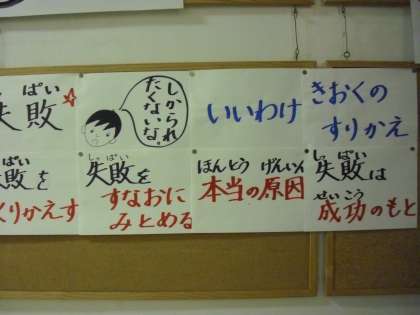 ぱい
失敗☆
しかられ
たくないな。
いいわけ
きおくの
すりかえ
ぱい
失敗を
くりかえす
しっぱい
失敗を
すなおに
みとめる
ほんとう げんいん
本当の原因
しっぱい
失敗は
せいこう
成功のもと